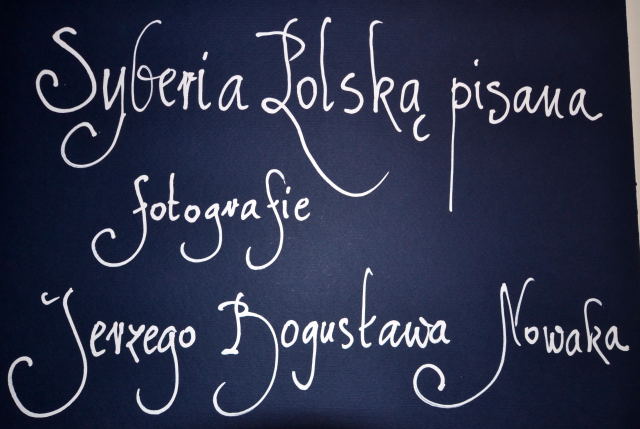 Syberia Polską pisana
fotografie
Jerzego Bogusława Nowaka